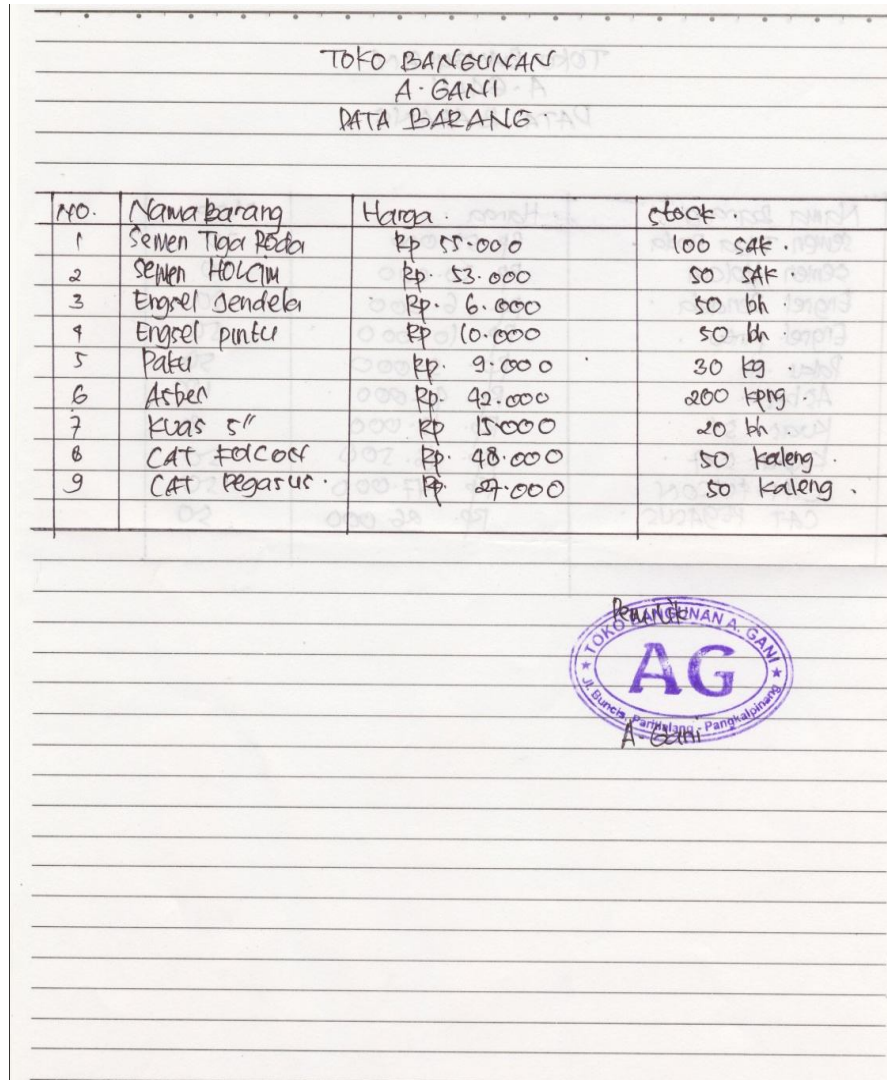 TOKO BANGUNAN
A. GANI
DATA BARANG
NO. Nama Barang Harga. stock.
1 Semen Tiga Roda Rp 55.000 100 SAK.
2 Semen HOLCIM Rp. 53.000 50 SAK
3 Engsel Jendela Rp. 6.000 50 bh.
4 Engsel pintu Rp. 10.000 50 bh.
5 Paku Rp. 9.000 30 kg
6 Asbes Rp. 42.000 200 kpng.
7 Kuas 5" Rp. 15.000 20 bh.
8 CAT Rp. 48.000 50 kaleng.
9 CAT Pegasus. Rp. 27.000 50 kaleng.
Pemilik
TOKO BANGUNAN A. GANI
AG
Jl. Buncis, Parit Lalang - Pangkalpinang
A. Gani